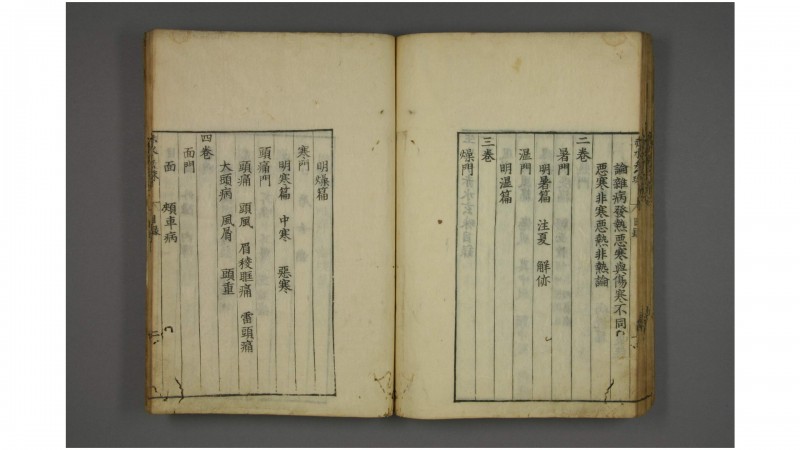 論雜病發熱惡寒與傷寒不同
惡寒非寒惡熱非熱論
二卷
暑門
明暑篇　注夏　解㑊
濕門
明濕篇
三卷
燥門
明燥篇
寒門
明寒篇　中寒　惡寒
頭痛門
頭痛　頭風　眉稜眶痛　雷頭痛
大頭病　風屑　頭重
四卷
面門
面　頰車病
目錄